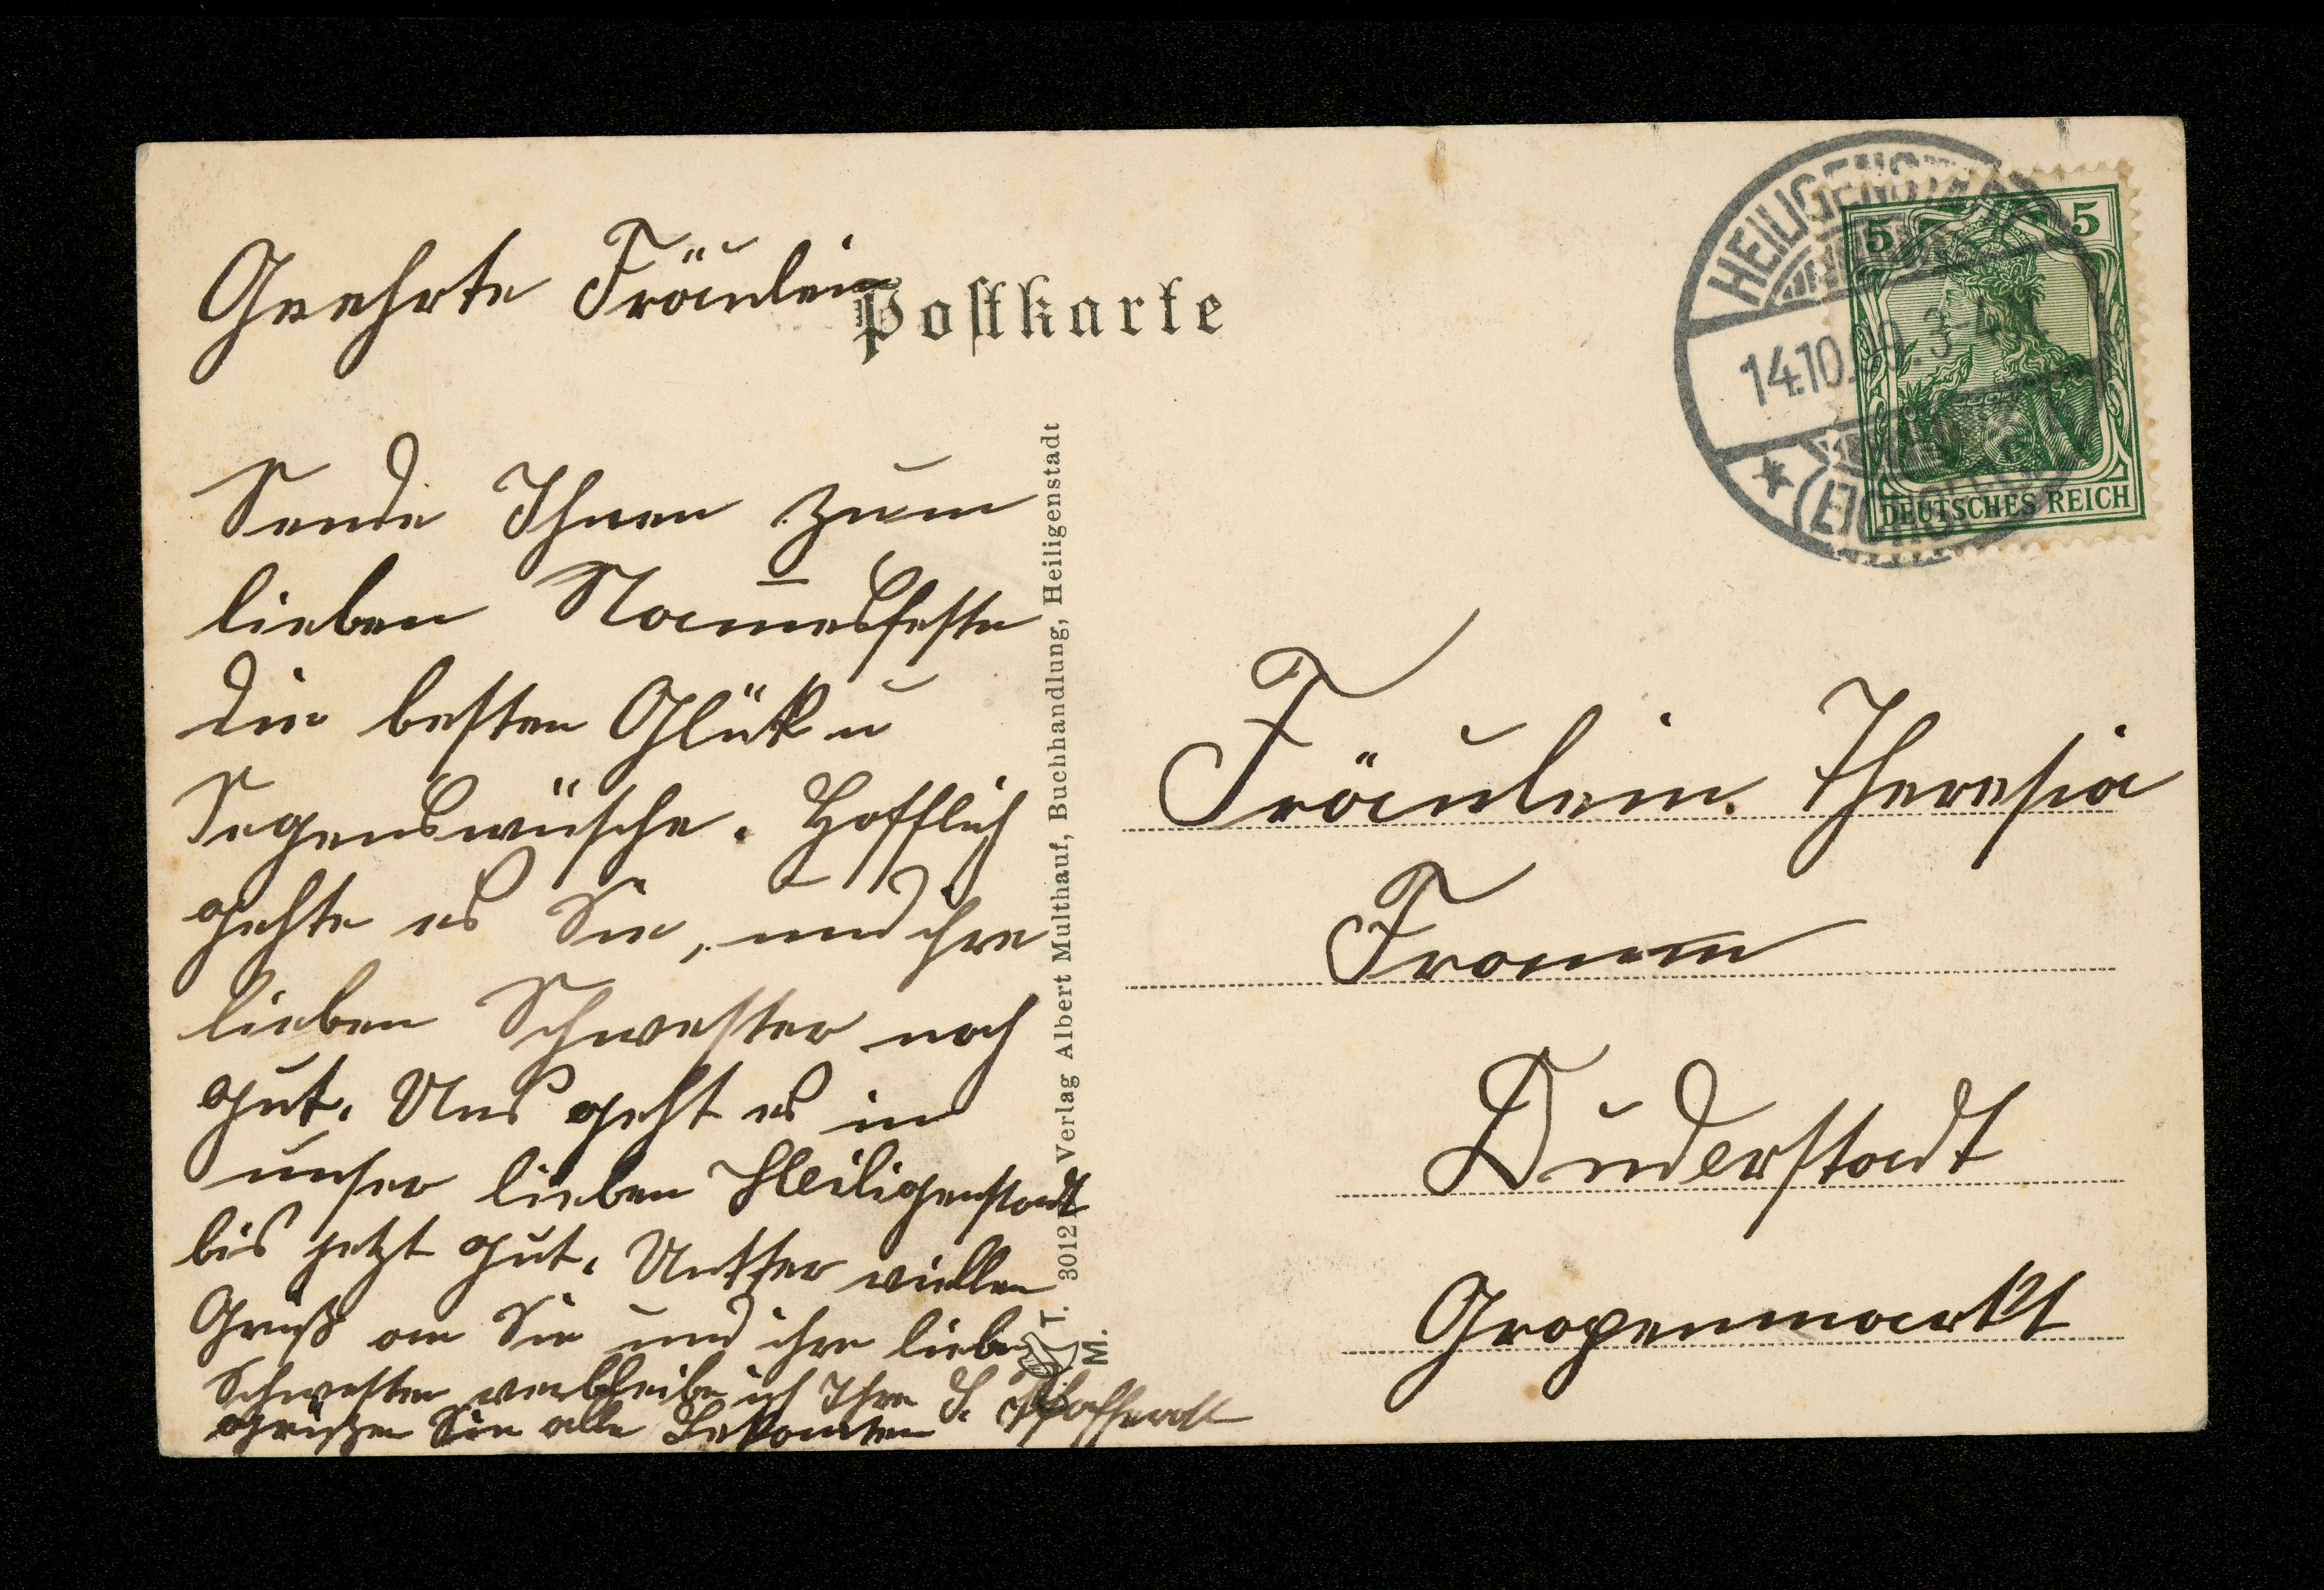 Geehrte Fräulein
Postkarte
Sende Ihnen zum
lieben Namesfeste
die besten Glük u
Segenswüsche. Hofflich
gehte es Sie, und ihre
lieben Schwester noch
gut. Uns geht es in
unser lieben Heiligenstadt
bis jetzt gut. Untter viellen
Grüß an Sie und ihre lieben
Schwester verbleibe ich Ihre
grüßen Sie alle Bekannten
Verlag Albert Multhauf, Buchhandlung, Heiligenstadt
3012
T.
M.
HEILIGENSTADT
14.10.
3-4
(EICHSFELD)
5 5
DEUTSCHES REICH
Fräulein. Theresia
Fromm
Duderstadt
Gropenmarkt